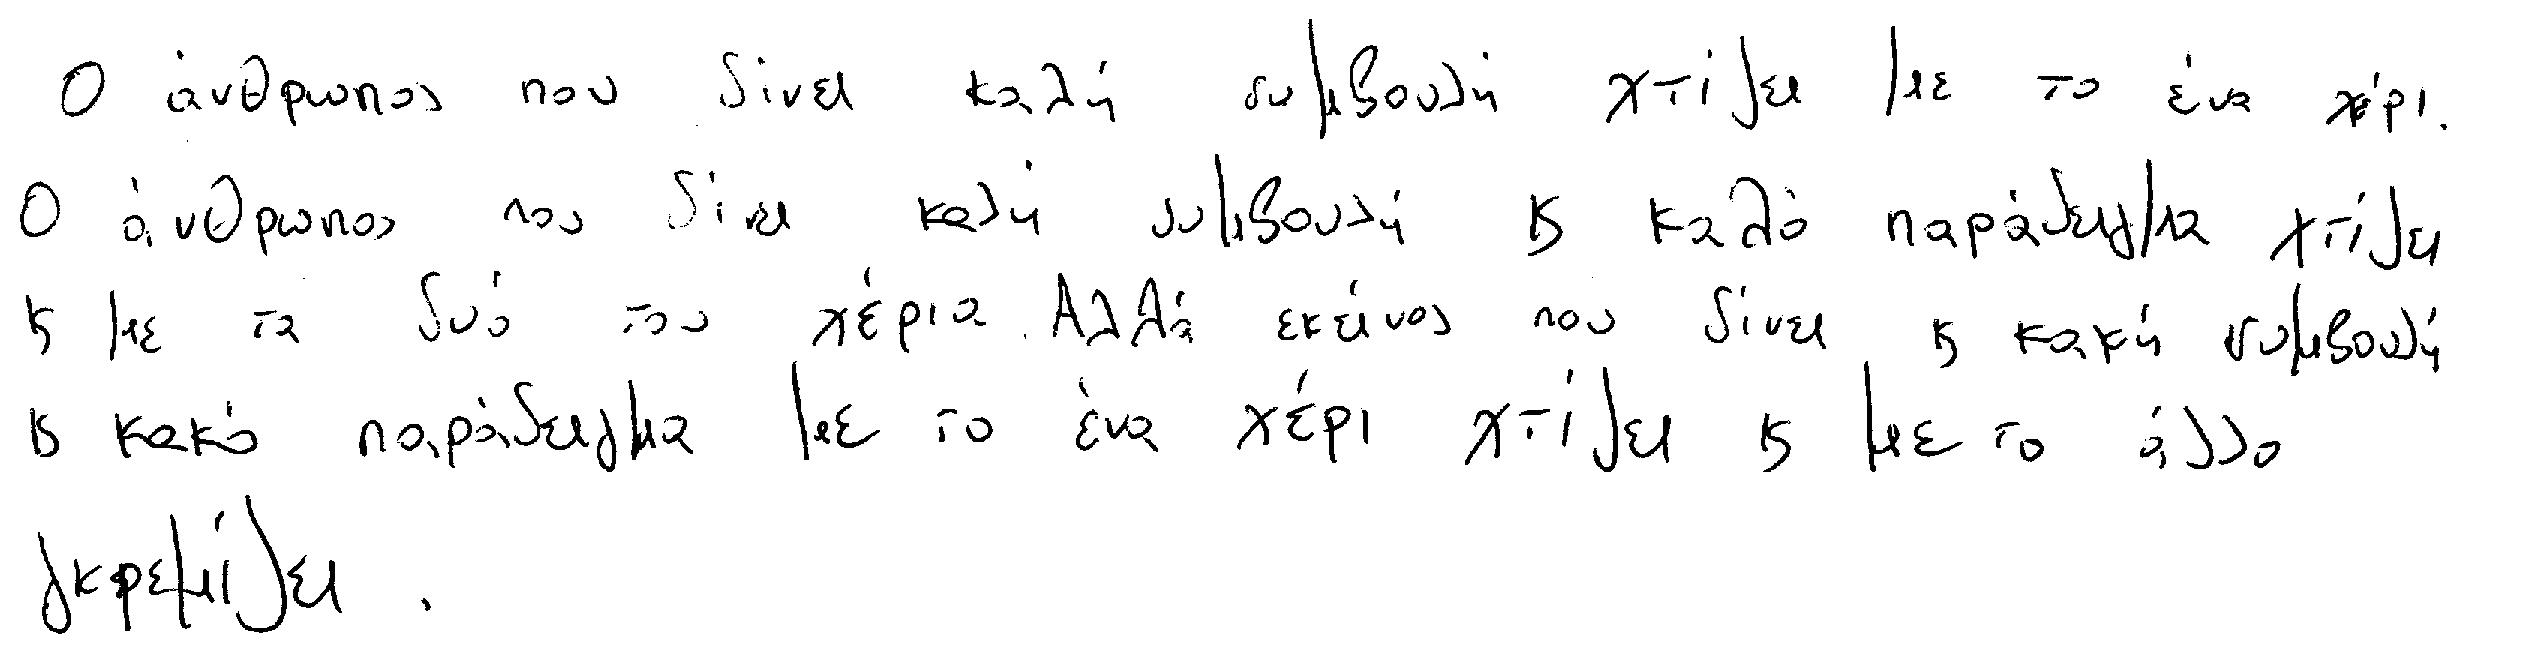 Ο άνθρωπος που δίνει καλή συμβουλή χτίζει με το ένα χέρι.
Ο άνθρωπος που δίνει καλή συμβουλή ϗ καλό παράδειγμα χτίζει
ϗ με τα δυό του χέρια. Αλλά εκείνος που δίνει ϗ κακή συμβουλή
ϗ κακό παράδειγμα με το ένα χέρι χτίζει ϗ με το άλλο
γκρεμίζει.